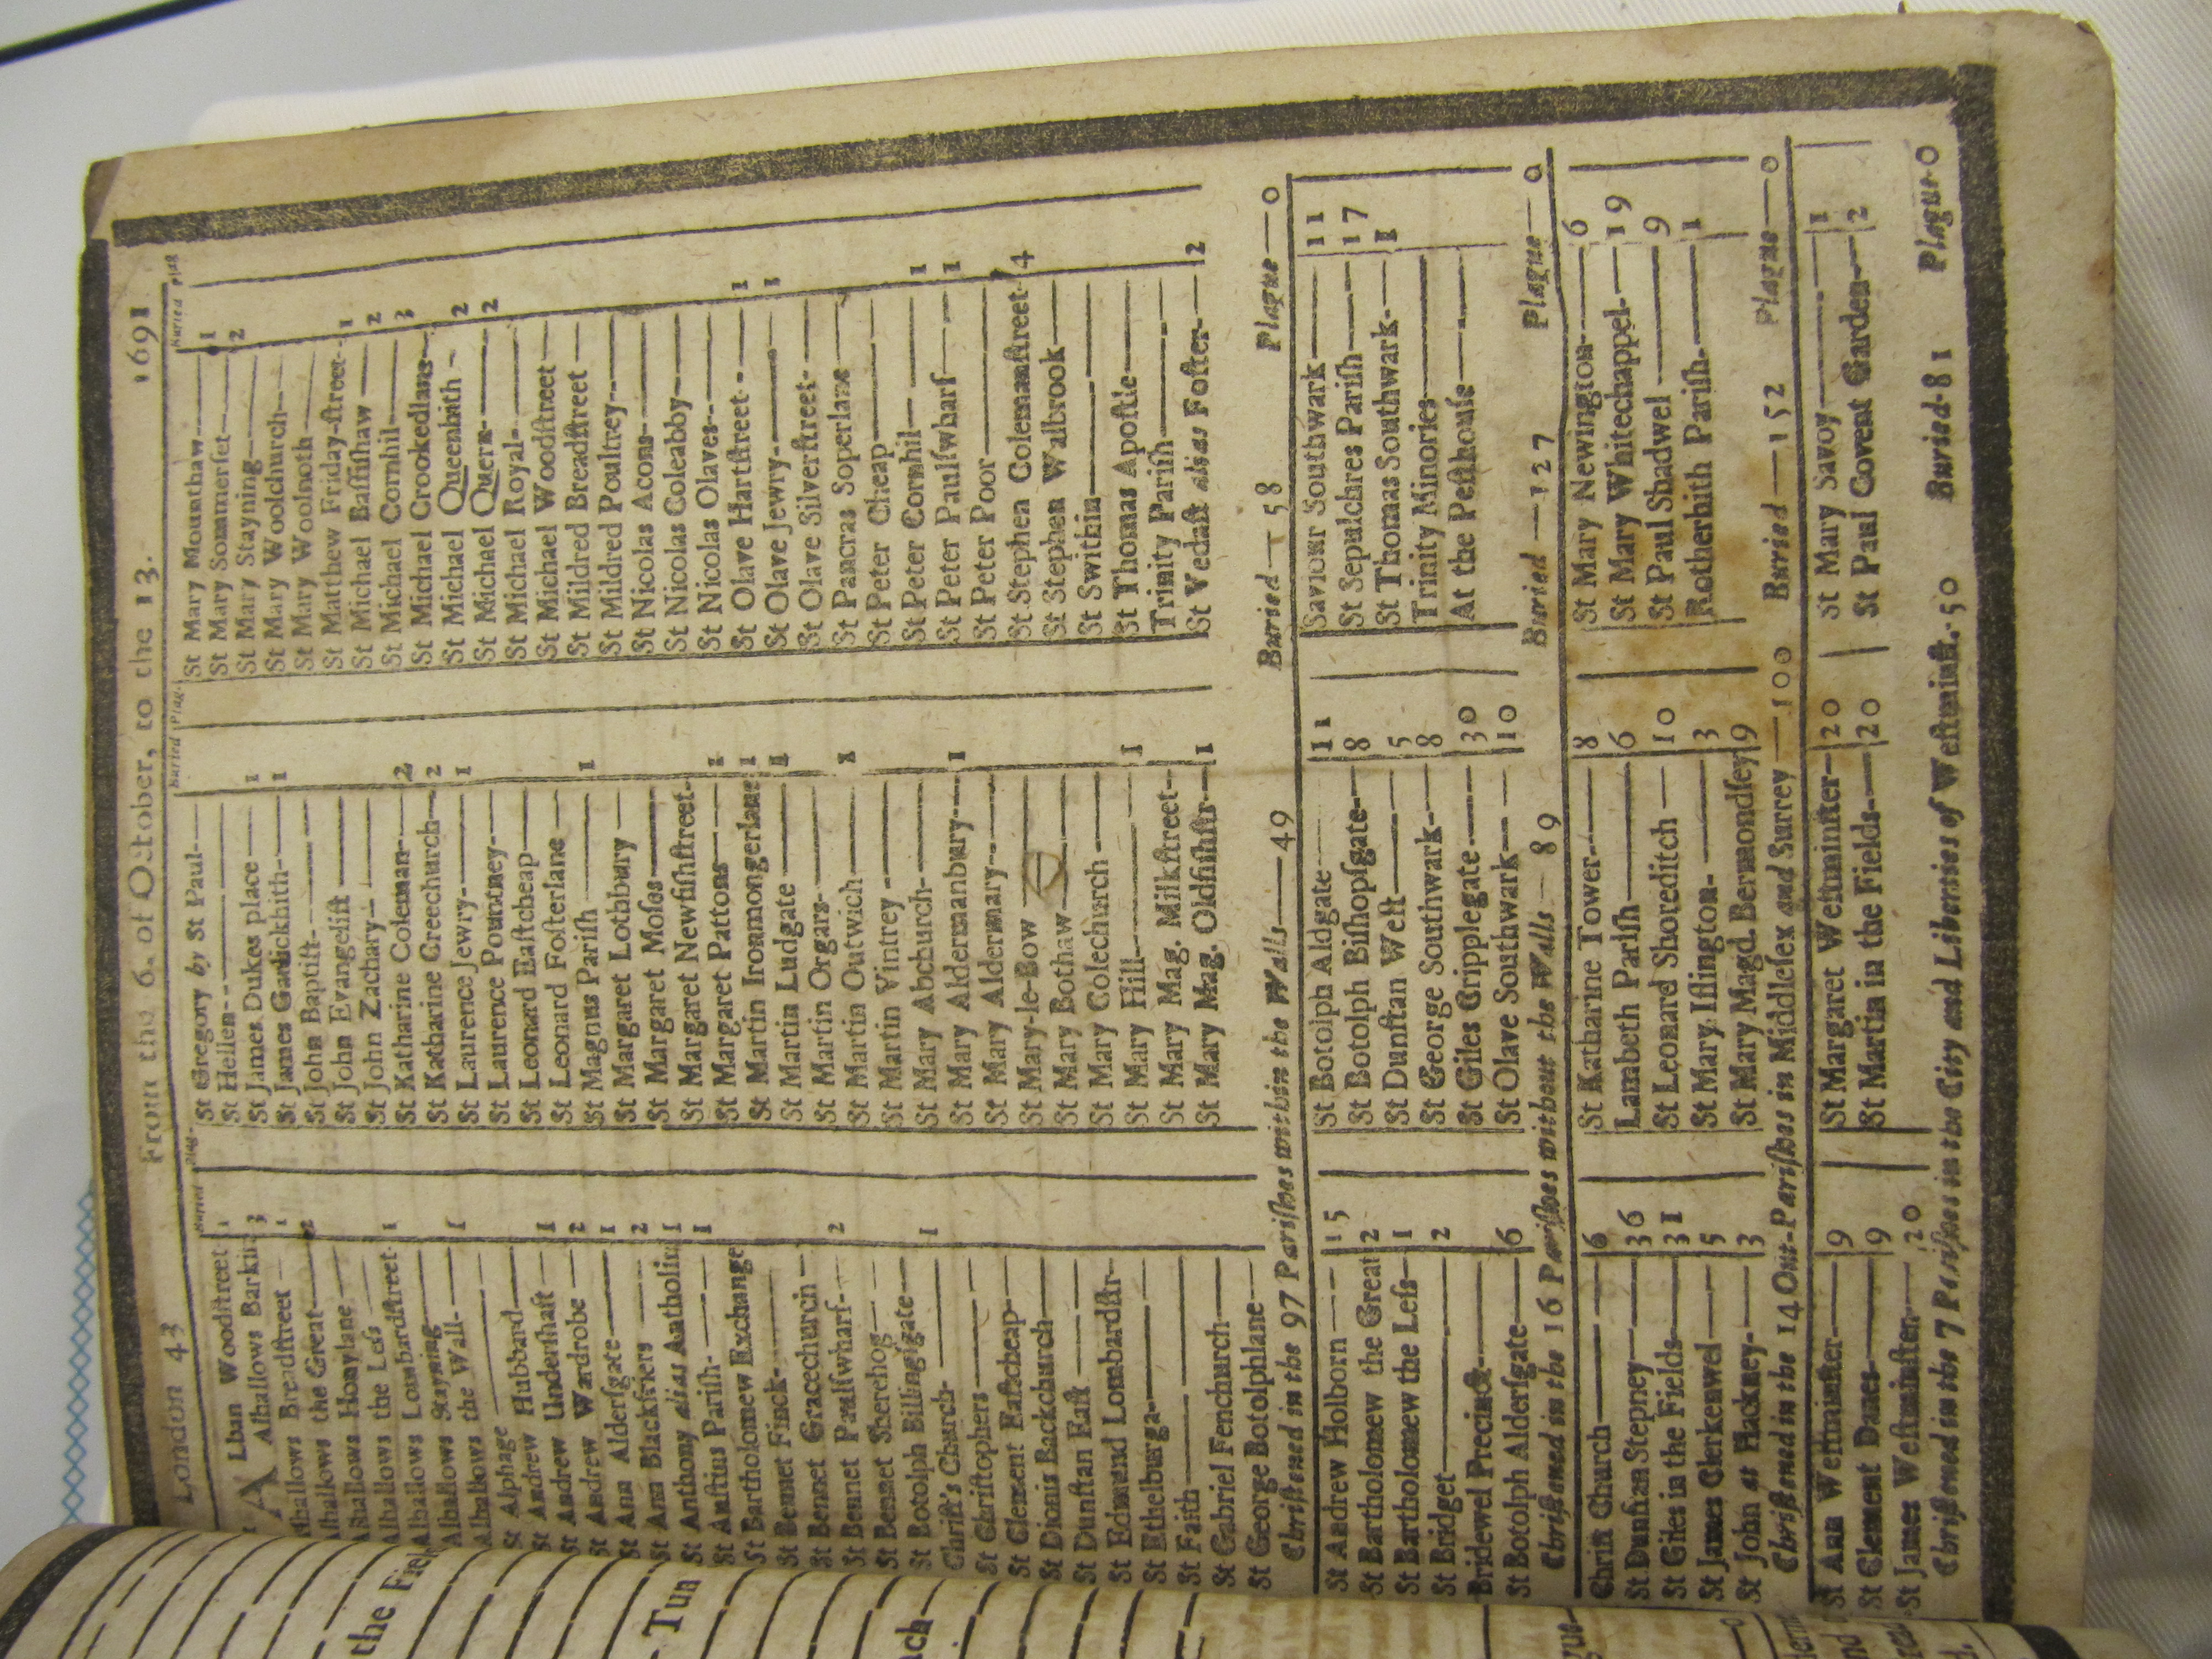 London 43 From the 6. of October, to the 13. 1691
Buried Plag.
ALban Woodſtreet 1
Alhallows Barkin 3
Alhallows Breadſtreet — 1
Alhallows the Great — 2
Alhallows Honylane —
Alhallows the Leſs —
Alhallows Lombardſtreet- 1
Alhallows Stayning —
Alhallows the Wall- — 1
St Alphage —
St Andrew Hubbard —
St Andrew Underſhaft — 1
St Andrew Wardrobe — 2
St Ann Alderſgate — 1
St Ann Blackfriers — 2
St Anthony alias Antholin 1
St Auſtins Pariſh- — 1
St Bartholomew Exchange
St Bennet Finck- —
St Bennet Gracechurch —
St Bennet Paulſwharf- — 2
St Bennet Sherehog —
St Botolph Billingſgate —
Chriſt's Church- — 1
St Chriſtophers —
St Clement Eaſtcheap —
St Dionis Backchurch —
St Dunſtan Eaſt —
St Edmund Lombardſtr-
St Ethelburga- —
St Faith —
St Gabriel Fenchurch —
St George Botolphlane —
Buried Plag.
St Gregory by St Paul- —
St Hellen- —
St James Dukes place — 1
St James Garlickhith- — 1
St John Baptiſt- —
St John Evangeliſt —
St John Zachary —
St Katharine Coleman- — 2
St Katharine Creechurch — 2
St Laurence Jewry- — 1
St Laurence Pountney- —
St Leonard Eaſtcheap —
St Leonard Foſterlane —
St Magnus Pariſh — 1
St Margaret Lothbury —
St Margaret Moſes —
St Margaret Newfiſhſtreet-
St Margaret Pattons — 1
St Martin Ironmongerlane 1
St Martin Ludgate — 1
St Martin Orgars- —
St Martin Outwich — 1
St Martin Vintrey —
St Mary Abchurch- —
St Mary Aldermanbury — 1
St Mary Aldermary- —
St Mary-le-Bow —
St Mary Bothaw —
St Mary Colechurch —
St Mary Hill — 1
St Mary Mag. Milkſtreet-
St Mary Mag. Oldfiſhſtr- — 1
Buried Plag
St Mary Mounthaw — 1
St Mary Sommerſet — 2
St Mary Stayning —
St Mary Woolchurch —
St Mary Woolnoth —
St Matthew Friday-ſtreet- 1
St Michael Baſſiſhaw — 2
St Michael Cornhil — 3
St Michael Crookedlane-
St Michael Queenhith - 2
St Michael Quern- — 2
St Michael Royal- —
St Michael Woodſtreet —
St Mildred Breadſtreet —
St Mildred Poultrey- —
St Nicolas Acons- —
St Nicolas Coleabby —
St Nicolas Olaves- —
St Olave Hartſtreet- — 1
St Olave Jewry- — 1
St Olave Silverſtreet- —
St Pancras Soperlane —
St Peter Cheap —
St Peter Cornhil — 1
St Peter Paulſwharf — 1
St Peter Poor —
St Stephen Colemanſtreet- 4
St Stephen Walbrook —
St Swithin —
St Thomas Apoſtle —
Trinity Pariſh —
St Vedaſt alias Foſter- — 2
Chriſtened in the 97 Pariſhes within the Walls — 49 Buried — 58 Plague — 0
St Andrew Holborn — 15
St Bartholomew the Great 2
St Bartholomew the Leſs- 1
St Bridget — 2
Bridewel Precinct- —
St Botolph Alderſgate — 6
St Botolph Aldgate — 11
St Botolph Biſhopſgate- — 8
St Dunſtan Weſt — 5
St George Southwark- — 8
St Giles Cripplegate — 30
St Olave Southwark — 10
Saviour Southwark — 11
St Sepulchres Pariſh — 17
St Thomas Southwark- — 1
Trinity Minories —
At the Peſthouſe —
Chriſtened in the 16 Pariſhes without the Walls — 89 Buried — 127 Plague — 0
Chriſt Church — 6
St Dunſtan Stepney — 36
St Giles in the Fields — 31
St James Clerkenwel — 5
St John at Hackney- — 3
St Katharine Tower- — 8
Lambeth Pariſh — 6
St Leonard Shoreditch — 10
St Mary Iſlington- — 3
St Mary Magd. Bermondſey 9
St Mary Newington — 6
St Mary Whitechappel- — 19
St Paul Shadwel — 9
Rotherhith Pariſh- — 1
Chriſtened in the 14 Out-Pariſhes in Middleſex and Surrey — 100 Buried — 152 Plague — 0
St Ann Weſtminſter — 9
St Clement Danes — 9
St James Weſtminſter — 20
St Margaret Weſtminſter- 20
St Martin in the Fields — 20
St Mary Savoy — 1
St Paul Covent Garden — 2
Chriſtened in the 7 Pariſhes in the City and Liberties of Weſtminſt.- 50 Buried- 81 Plague- 0
the Fie
Tun